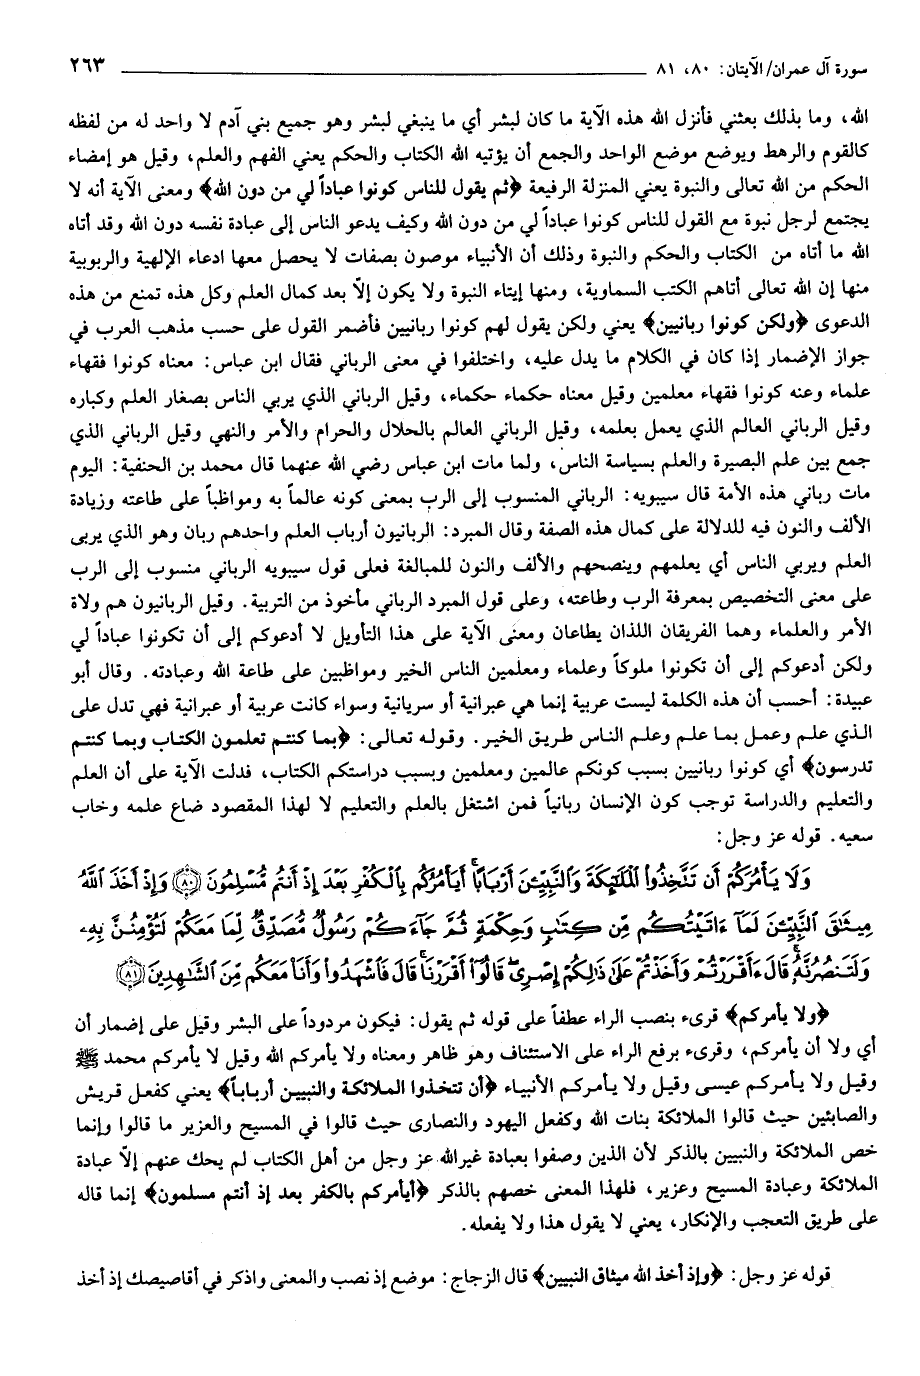 سورة آل عمران/ الآيتان: ٨٠، ٨١ ٢٦٣
الله، وما بذلك بعثني فأنزل الله هذه الآية ما كان لبشر أي ما ينبغي لبشر وهو جميع بني آدم لا واحد له من لفظه
كالقوم والرهط ويوضع موضع الواحد والجمع أن يؤتيه الله الكتاب والحكم يعني الفهم والعلم، وقيل هو إمضاء
الحكم من الله تعالى والنبوة يعني المنزلة الرفيعة ﴿ثم يقول للناس كونوا عباداً لي من دون الله﴾ ومعنى الآية أنه لا
يجتمع لرجل نبوة مع القول للناس كونوا عباداً لي من دون الله وكيف يدعو الناس إلى عبادة نفسه دون الله وقد أتاه
الله ما أتاه من الكتاب والحكم والنبوة وذلك أن الأنبياء موصون بصفات لا يحصل معها ادعاء الإلهية والربوبية
منها إن الله تعالى أتاهم الكتب السماوية، ومنها إيتاء النبوة ولا يكون إلاّ بعد كمال العلم وكل هذه تمنع من هذه
الدعوى ﴿ولكن كونوا ربانيين﴾ يعني ولكن يقول لهم كونوا ربانيين فأضمر القول على حسب مذهب العرب في
جواز الإضمار إذا كان في الكلام ما يدل عليه، واختلفوا في معنى الرباني فقال ابن عباس: معناه كونوا فقهاء
علماء وعنه كونوا فقهاء معلمين وقيل معناه حكماء حكماء، وقيل الرباني الذي يربي الناس بصغار العلم وكباره
وقيل الرباني العالم الذي يعمل بعلمه، وقيل الرباني العالم بالحلال والحرام والأمر والنهي وقيل الرباني الذي
جمع بين علم البصيرة والعلم بسياسة الناس، ولما مات ابن عباس رضي الله عنهما قال محمد بن الحنفية: اليوم
مات رباني هذه الأمة قال سيبويه: الرباني المنسوب إلى الرب بمعنى كونه عالماً به ومواظباً على طاعته وزيادة
الألف والنون فيه للدلالة على كمال هذه الصفة وقال المبرد: الربانيون أرباب العلم واحدهم ربان وهو الذي يربى
العلم ويربي الناس أي يعلمهم وينصحهم والألف والنون للمبالغة فعلى قول سيبويه الرباني منسوب إلى الرب
على معنى التخصيص بمعرفة الرب وطاعته، وعلى قول المبرد الرباني مأخوذ من التربية. وقيل الربانيون هم ولاة
الأمر والعلماء وهما الفريقان اللذان يطاعان ومعنى الآية على هذا التأويل لا أدعوكم إلى أن تكونوا عباداً لي
ولكن أدعوكم إلى أن تكونوا ملوكاً وعلماء ومعلمين الناس الخير ومواظبين على طاعة الله وعبادته. وقال أبو
عبيدة: أحسب أن هذه الكلمة ليست عربية إنما هي عبرانية أو سريانية وسواء كانت عربية أو عبرانية فهي تدل على
الذي علم وعمل بما علم وعلم الناس طريق الخير. وقوله تعالى: ﴿بما كنتم تعلمون الكتاب وبما كنتم
تدرسون﴾ أي كونوا ربانيين بسبب كونكم عالمين ومعلمين وبسبب دراستكم الكتاب، فدلت الآية على أن العلم
والتعليم والدراسة توجب كون الإنسان ربانياً فمن اشتغل بالعلم والتعليم لا لهذا المقصود ضاع علمه وخاب
سعيه. قوله عز وجل:
وَلَا يَأْمُرَكُمْ أَن تَتَّخِذُوا۟ ٱلْمَلَٰٓئِكَةَ وَٱلنَّبِيِّۦنَ أَرْبَابًا ۗ أَيَأْمُرُكُم بِٱلْكُفْرِ بَعْدَ إِذْ أَنتُم مُّسْلِمُونَ ﴿٨٠﴾ وَإِذْ أَخَذَ ٱللَّهُ
مِيثَٰقَ ٱلنَّبِيِّۦنَ لَمَآ ءَاتَيْتُكُم مِّن كِتَٰبٍ وَحِكْمَةٍ ثُمَّ جَآءَكُمْ رَسُولٌ مُّصَدِّقٌ لِّمَا مَعَكُمْ لَتُؤْمِنُنَّ بِهِۦ
وَلَتَنصُرُنَّهُۥ ۚ قَالَ ءَأَقْرَرْتُمْ وَأَخَذْتُمْ عَلَىٰ ذَٰلِكُمْ إِصْرِى ۖ قَالُوٓا۟ أَقْرَرْنَا ۚ قَالَ فَٱشْهَدُوا۟ وَأَنَا۠ مَعَكُم مِّنَ ٱلشَّٰهِدِينَ ﴿٨١﴾
﴿ولا يأمركم﴾ قرىء بنصب الراء عطفاً على قوله ثم يقول: فيكون مردوداً على البشر وقيل على إضمار أن
أي ولا أن يأمركم، وقرىء برفع الراء على الاستئناف وهو ظاهر ومعناه ولا يأمركم الله وقيل لا يأمركم محمد ﷺ
وقيل ولا يأمركم عيسى وقيل ولا يأمركم الأنبياء ﴿أن تتخذوا الملائكة والنبيين أرباباً﴾ يعني كفعل قريش
والصابئين حيث قالوا الملائكة بنات الله وكفعل اليهود والنصارى حيث قالوا في المسيح والعزير ما قالوا وإنما
خص الملائكة والنبيين بالذكر لأن الذين وصفوا بعبادة غيرالله عز وجل من أهل الكتاب لم يحك عنهم إلاّ عبادة
الملائكة وعبادة المسيح وعزير، فلهذا المعنى خصهم بالذكر ﴿أيأمركم بالكفر بعد إذ أنتم مسلمون﴾ إنما قاله
على طريق التعجب والإنكار، يعني لا يقول هذا ولا يفعله.
قوله عز وجل: ﴿وإذ أخذ الله ميثاق النبيين﴾ قال الزجاج: موضع إذ نصب والمعنى واذكر في أقاصيصك إذ أخذ